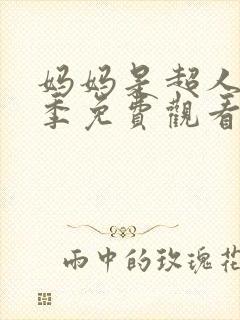 妈妈是超人
季免費觀看
雨中的玫瑰花